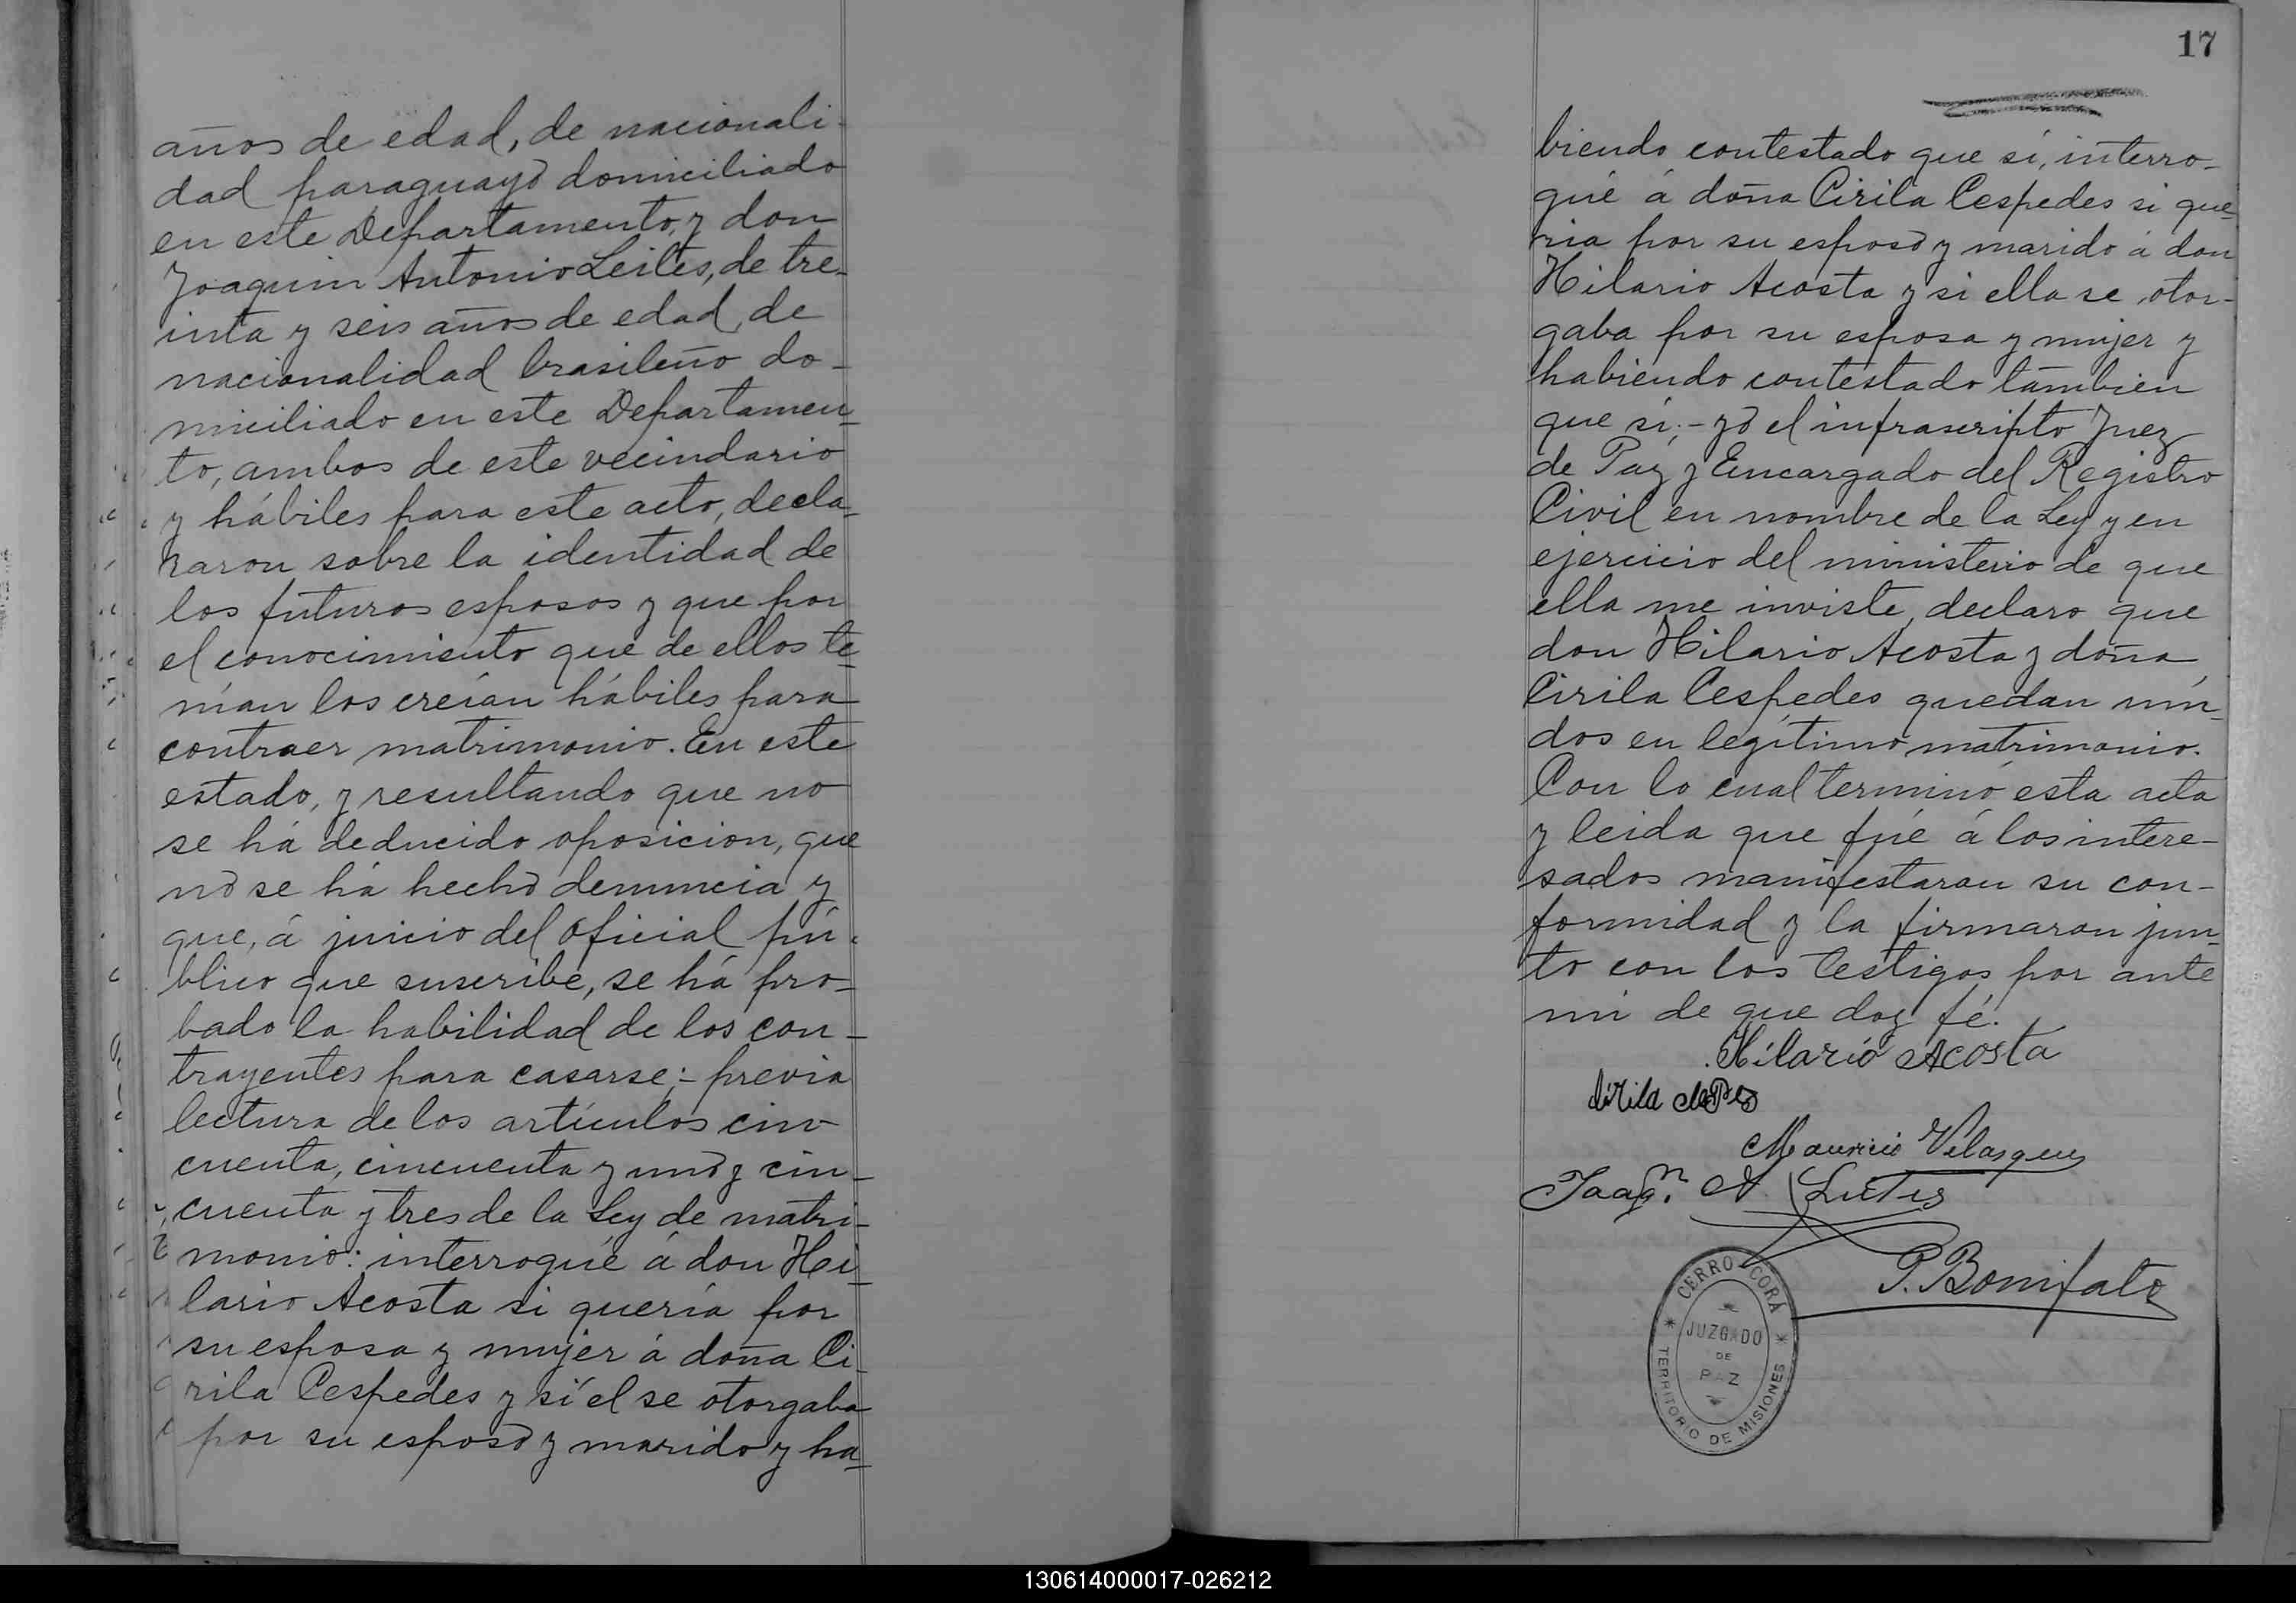 años de edad, de nacionali-
dad paraguayo domiciliado
en este Departamento, y don
Joaquin Antonio Leites, de tre-
inta y seis años de edad, de
nacionalidad brasileño do-
miciliado en este Departamen-
to, ambos de este vecindario
y hábiles para este acto, decla-
raron sobre la identidad de
los futuros esposos y que por
el conocimiento que de ellos te-
nían los creían hábiles para
contraer matrimonio. En este
estado, y resultando que no
se há deducido oposicion, que
no se há hecho denuncia y
que, á juicio del oficial pú-
blico que suscribe, se há pro-
bado la habilidad de los con-
trayentes para casarse;- previa
lectura de los artículos cin-
cuenta, cincuenta y uno y cin-
cuenta y tres de la Ley de matri-
monio: interrogué á don Hi-
lario Acosta si quería por
su esposa y mujer á doña Ci-
rila Cespedes y sí el se otorgaba
por su esposo y marido y ha-
17
biendo contestado que sí, interro-
gué á doña Cirila Cespedes si que-
ria por su esposo y marido á don
Hilario Acosta y si ella se otor-
gaba por su esposa y mujer y
habiendo contestado tambien
que sí;- yo el infrascripto Juez
de Paz y Encargado del Registro
Civil en nombre de la Ley y en
ejercicio del ministerio de que
ella me inviste, declaro que
don Hilario Acosta y doña
Cirila Cespedes quedan uni-
dos en legítimo matrimonio.
Con lo cual terminó esta acta
y leida que fué á los intere-
sados manifestaron su con-
formidad y la firmaron jun-
to con los testigos por ante
mi de que doy fé.
Hilario Acosta
Cirila
Mauricio Velasquez
Joaqn. A. Leites
P. Bonifato
CERRO-CORÁ
JUZGADO
DE
PAZ
TERRITORIO DE MISIONES
130614000017-026212